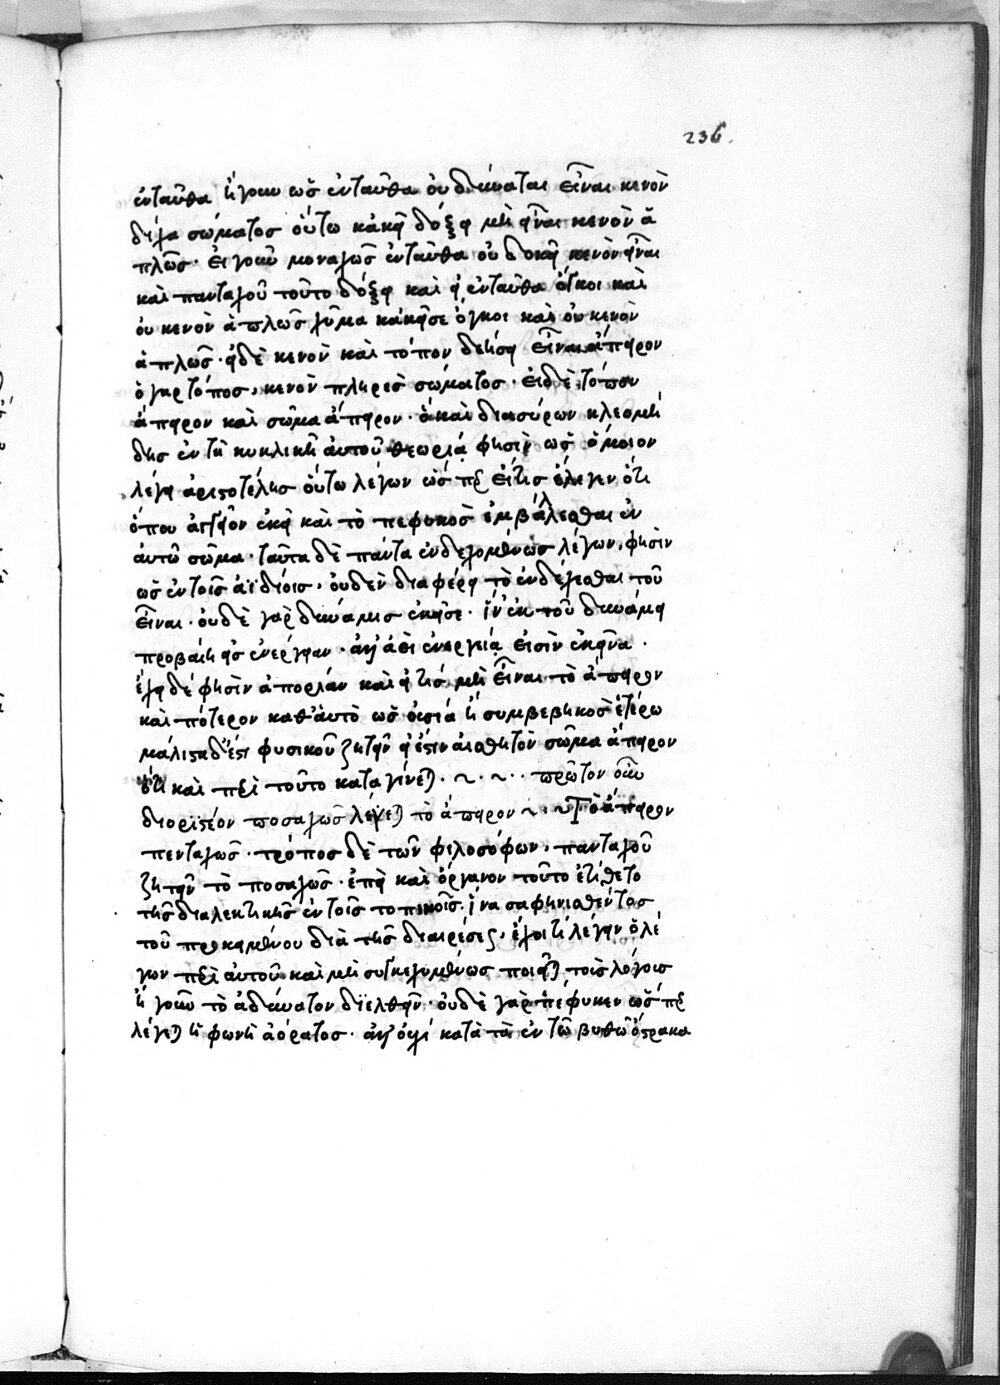 236.
ἐνταῦθα ἤγουν ὡς ἐνταῦθα οὐ δύναται εἶναι κενὸν
δίχα σώματος οὕτω κἀκεῖ δόξει μὴ εἶναι κενὸν ἁ
πλῶς· εἰ γοῦν μοναχῶς ἐνταῦθα οὐ δοκεῖ κενὸν εἶναι
καὶ πανταχοῦ τοῦτο δόξει καὶ εἰ ἐνταῦθα ὄγκοι καὶ
οὐ κενὸν ἁπλῶς χῦμα κἀκεῖσε ὄγκοι καὶ οὐ κενὸν
ἁπλῶς· εἰ δὲ κενὸν καὶ τόπον δεήσει εἶναι ἄπειρον
ὁ γὰρ τόπος, κενὸν πλῆρες σώματος· εἰ δὲ τόπον
ἄπειρον καὶ σῶμα ἄπειρον· ὃ καὶ διασύρων κλεομή
δης ἐν τῇ κυκλικῇ αὐτοῦ θεωρίᾳ φησὶν ὡς ὅμοιον
λέγει ἀριστοτέλης οὕτω λέγων ὥσπερ εἴ τις ἔλεγεν ὅτι
ὅπου ἀγγεῖον ἐκεῖ καὶ τὸ πεφυκὸς ἐμβάλλεσθαι ἐν
αὐτῷ σῶμα· ταῦτα δὲ πάντα ἐνδεχομένως λέγων, φησὶν
ὡς ἐν τοῖς ἀϊδίοις, οὐδὲν διαφέρει τὸ ἐνδέχεσθαι τοῦ
εἶναι· οὐδὲ γὰρ δύναμις ἐκεῖσε· ἵν' ἐκ τοῦ δυνάμει
προβαίη εἰς ἐνέργειαν· ἀλλ' ἀεὶ ἐνεργείᾳ εἰσὶν ἐκεῖνα·
ἔχει δέ φησιν ἀπορίαν καὶ εἴ τις μὴ εἶναι τὸ ἄπειρον
καὶ πότερον καθ' αὑτὸ ὡς οὐσία ἢ συμβεβηκὸς ἑτέρῳ
μάλιστα δ' ἐστι φυσικοῦ ζητεῖν εἰ ἔστιν αἰσθητὸν σῶμα ἄπειρον
ὅτι καὶ περὶ τοῦτο καταγίνεται· ~ · ~ · · πρῶτον οὖν
διοριστέον ποσαχῶς λέγεται τὸ ἄπειρον ~ · ~ Τὸ ἄπειρον
πενταχῶς· τρόπος δὲ τῶν φιλοσόφων, πανταχοῦ
ζητεῖν τὸ ποσαχῶς· ἐπεὶ καὶ ὄργανον τοῦτο ἐτίθετο
τῆς διαλεκτικῆς ἐν τοῖς τοπικοῖς· ἵνα σαφηνισθέντος
τοῦ προκειμένου διὰ τῆς διαιρέσεως, ἔχοι τί λέγειν ὁ λέ
γων περὶ αὐτοῦ καὶ μὴ συγκεχυμένως ποιεῖται τοὺς λόγους
ἢ γοῦν τὸ ἀδύνατον διελθεῖν· οὐδὲ γὰρ πέφυκεν ὥσπερ
λέγεται ἡ φωνὴ ἀόρατος· ἀλλ' οὐχὶ κατὰ τὰ ἐν τῷ βυθῷ ὄστρακα